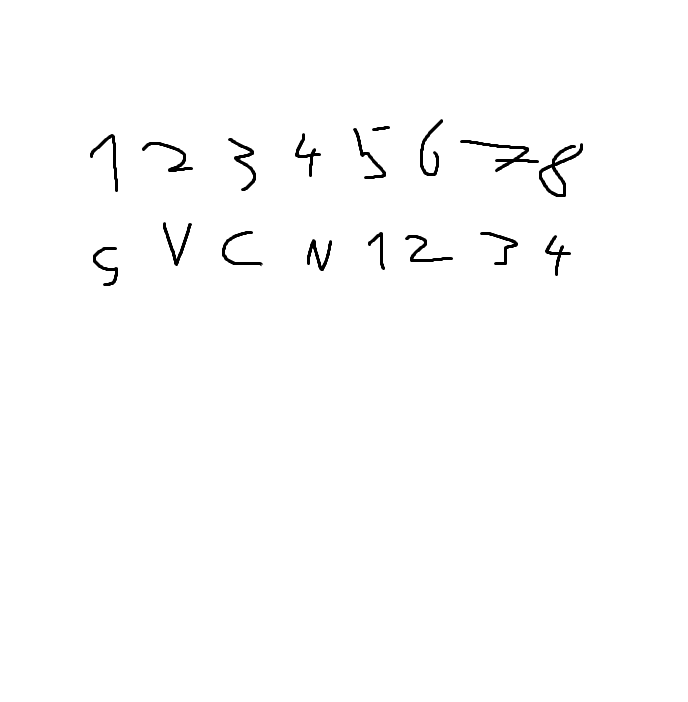 1 2 3 4 5 6 7 8
S V C N 1 2 3 4